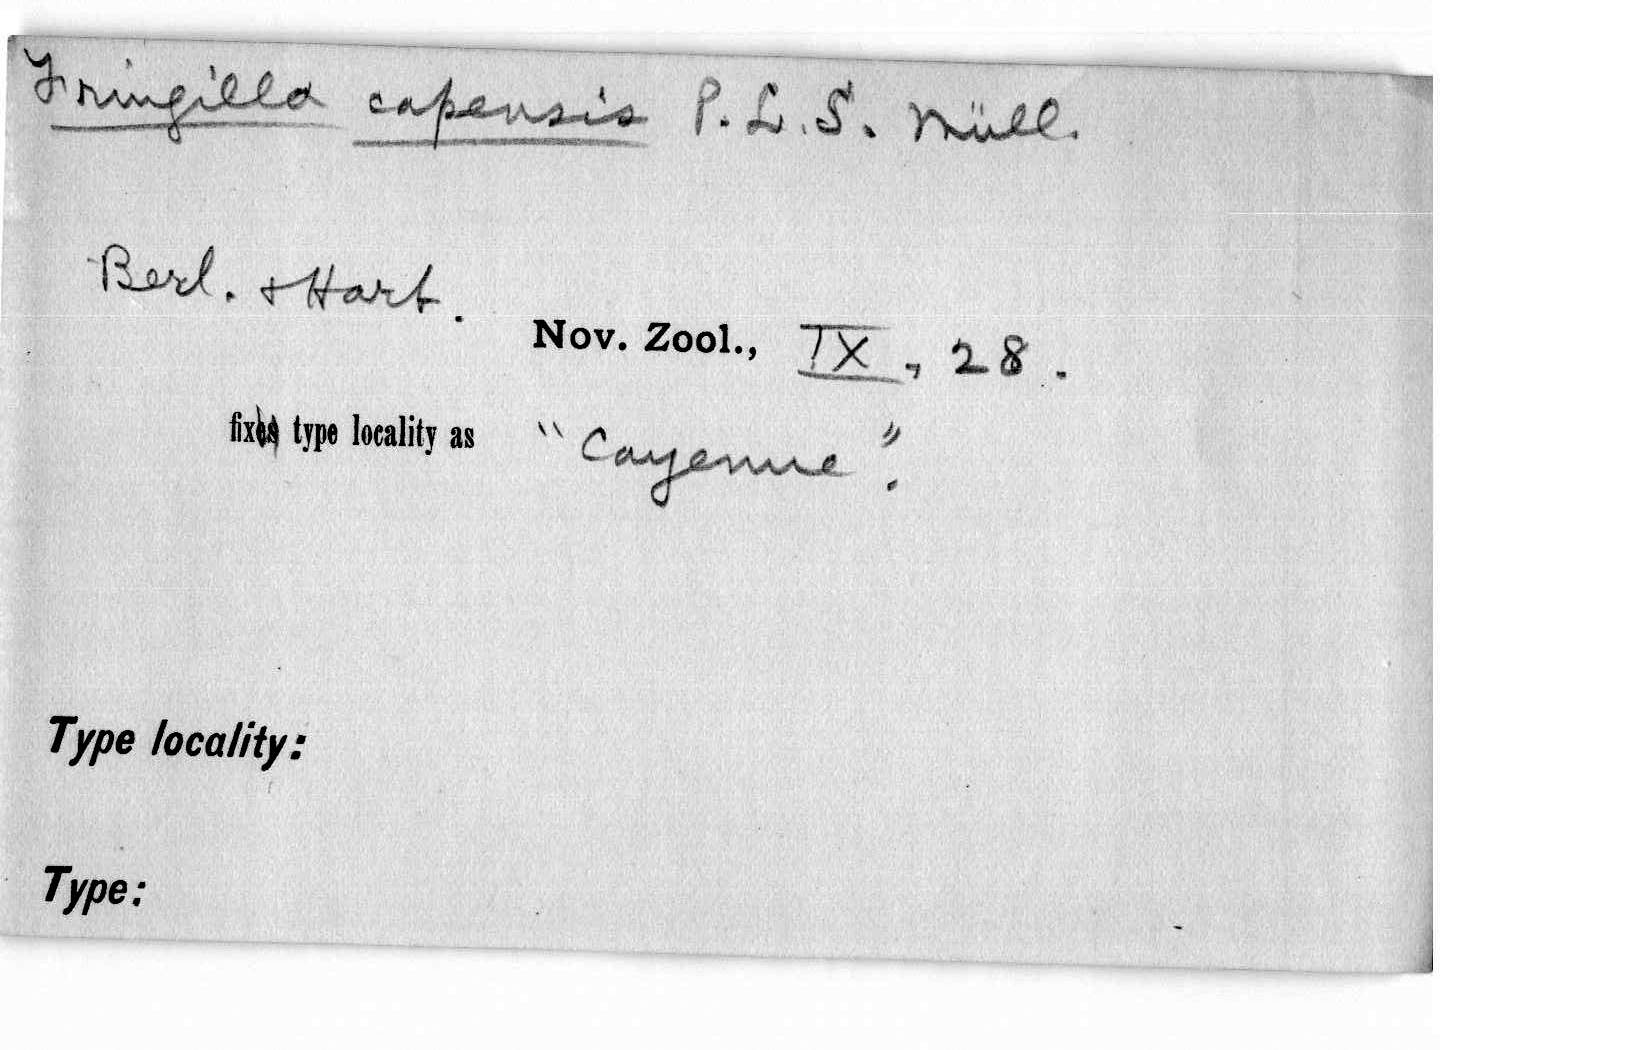 Fringilla capensis P.L.S. Müll.
Berl. + Hart.
Nov. Zool., IX, 28.
fix type locality as "Cayenne".
Type locality:
Type: